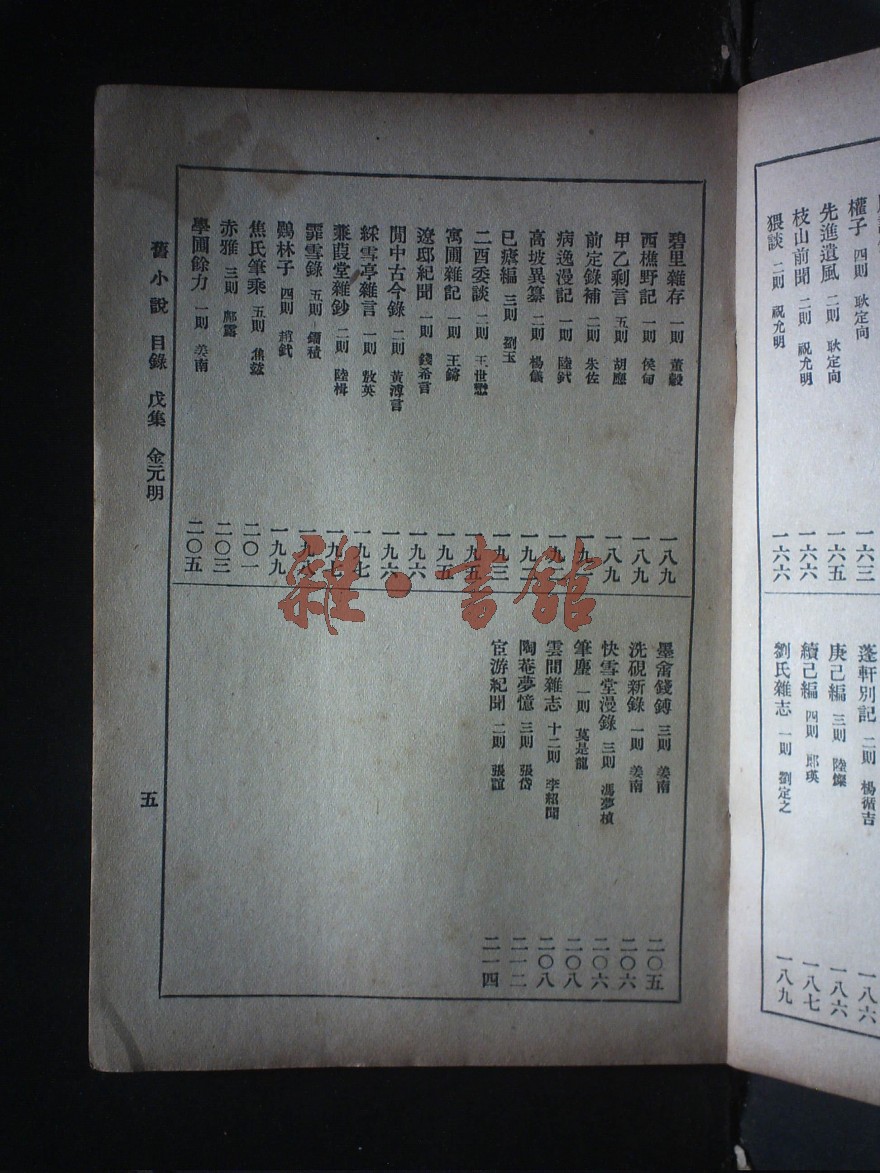 權子 四則 耿定向 一六三
先進遺風 二則 耿定向 一六五
枝山前聞 二則 祝允明 一六六
猥談 二則 祝允明 一六六
蓬軒別記 二則 楊循吉 一八六
庚己編 三則 陸燦 一八六
續己編 四則 郎瑛 一八七
劉氏雜志 一則 劉定之 一八九
碧里雜存 一則 董穀 一八九
西樵野記 一則 侯甸 一八九
甲乙剩言 五則 胡應 一八九
前定錄補 二則 朱佐
病逸漫記 一則 陸釴
高坡異纂 二則 楊儀
巳瘧編 三則 劉玉 一九三
二酉委談 二則 王世懋 一九五
寓圃雜記 一則 王錡 一九五
遼邸紀聞 一則 錢希言 一九六
閒中古今錄 二則 黃溥言 一九六
綵雪亭雜言 一則 敖英 一九七
蒹葭堂雜鈔 二則 陸楫 一九七
霏雪錄 五則 鎦績 一九八
鷃林子 四則 趙釴 一九九
焦氏筆乘 五則 焦竑 二〇一
赤雅 三則 鄺露 二〇三
學圃餘力 一則 姜南 二〇五
墨畬錢鎛 三則 姜南 二〇五
洗硯新錄 一則 姜南 二〇六
快雪堂漫錄 三則 馮夢楨 二〇六
筆麈 一則 莫是龍 二〇八
雲間雜志 十二則 李紹聞 二〇八
陶菴夢憶 三則 張岱 二一二
宦游紀聞 二則 張誼 二一四
舊小說 目錄 戊集 金元明
五
雜·書館